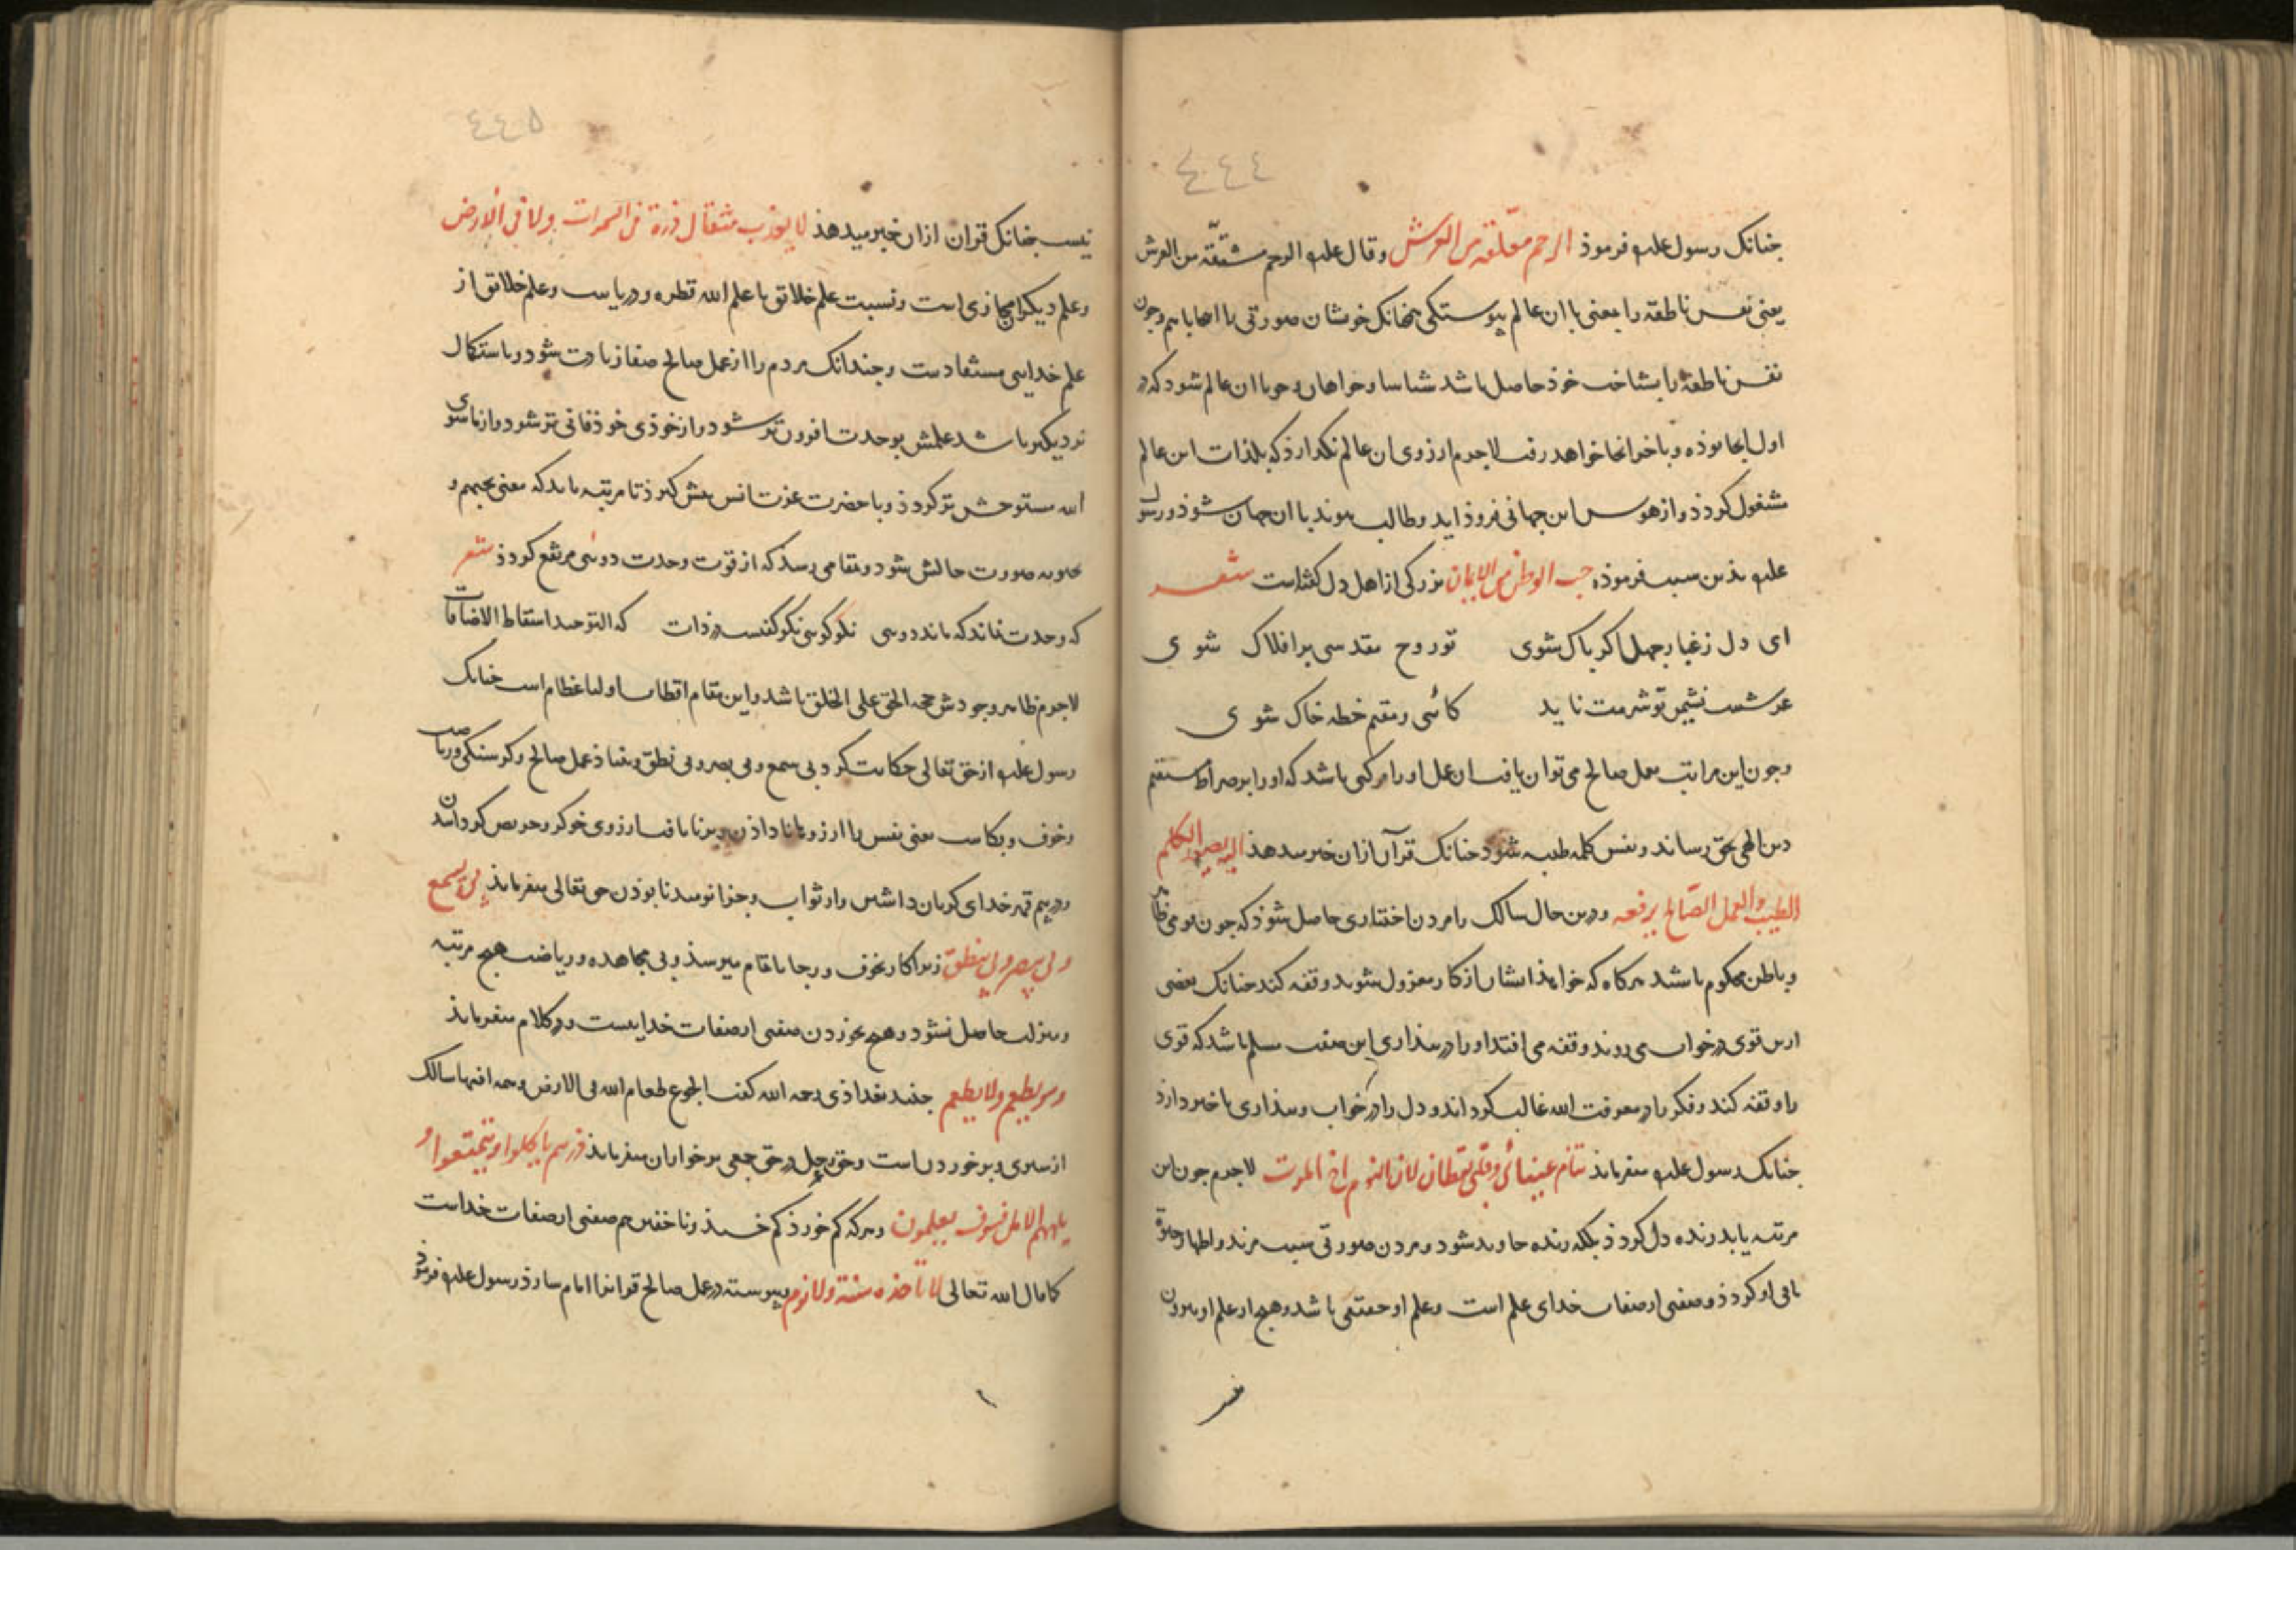 ٤٤٤
جنانک رسول علیه فرموذ الرحم معلّقة من العرش وقال علیه الرحم مشتقّة من العرش
یعنی نفس ناطقه را بمعنی با ان عالم پیوستکی همچنانک خوشان صورتی را با هم وجون
نفس ناطقه را بشناخت خوذ حاصل باشد شناسا وخواهان وجویا ان عالم شود که در
اول انجا بوذه وباخر انجا خواهد رفت لاجرم ارزوی ان عالم نکذارذ که بلذات این عالم
مشغول کردذ واز هوس این جهانی فروذ اید وطالب پیوند با ان جهان شوذ ورسول
علیه بذین سبب فرموذه حب الوطن من الایمان بزرکی از اهل دل کفته است شعر
ای دل زغبار جهل اکر پاک شوی تو روح مقدسی بر افلاک شوی
عرشست نشیمن تو شرمت ناید کائی ومقیم خطه خاک شوی
وجون این مراتب بعمل صالح می توان یافت ان عمل اورا مرکبی باشد که اورا بر صراط مستقیم
دین الهی بحق رساند ونفس کلمه طیبه شود جنانک قرآن ازان خبر میدهذ الیه یصعد الکلم
الطیب والعمل الصّالح یرفعه ودرین حال سالک را مردن اختیاری حاصل شوذ که جون
وباطن محکوم باشند هرکاه که خواهذ ایشان از کار معزول شوند وقفه کند جنانک بعضی
ازین قوی در خواب می روند وقفه می افتد اورا در بیذاری این صفت مسلم باشد که قوی
را وقفه کند وفکر را در معرفت الله غالب کرداند ودل را در خواب وبیذاری با خبر دارذ
جنانک رسول علیه میفرمایذ تنام عینائی وقلبی یقظان لان النوم اخ الموت لاجرم جون این
مرتبه یابد زنده دل کردذ بلکه زنده جاوید شود ومردن صورتی سبب مزید واظهار حیوة
باقی او کردذ وصفتی از صفات خدای علم است وعلم او حقیقی باشد وهیج از علم او بیرون
٤٤٥
نیست جنانک قران ازان خبر میدهذ لا یعزب مثقال ذرة فی السموات ولا فی الارض
وعلم دیکران مجازی است ونسبت علم خلائق با علم الله قطره ودریاست وعلم خلائق از
علم خدایی مستفادست وجندانک مردم را از عمل صالح صفا زیادت شود وباستکمال
نزدیکتر باشد علمش بوحدت افزون تر شود واز خوذی خوذ فانی تر شود واز ما سوی
الله مستوحش تر کردذ وبا حضرت عزت انس بیش کیرذ تا مرتبه یابد که معنی یحبهم و
یحبونه صورت حالش شود وبمقامی رسد که از قوت وحدت دوئی مرتفع کردذ شعر
که وحدت نماند که ماند دویی نکو کوی نکو کفتست در ذات که التوحید اسقاط الاضافات
لاجرم ظاهر وجودش حجة الحق علی الخلق باشد واین مقام اقطاب اولیا عظام است جنانک
رسول علیه از حق تعالی حکایت کرد بی یسمع وبی یبصر وبی ینطق وبنیاذ عمل صالح وکرسنکی وریاضت
وخوف وبکاست یعنی نفس را ارزو نا داذن وبر نایافت ارزوی خو کر وحریص کردانیدن
ودر بیم قهر خدای کریان داشتن واز ثواب وجزا نومید نا بوذن حق تعالی میفرمایذ بی یسمع
وبی یبصر وبی ینطق زیرا کار بخوف ورجا بانمام میرسذ وبی مجاهده وریاضت هیج مرتبه
ومنزلت حاصل نشود وهیج نخوردن صفتی از صفات خدایست ودر کلام میفرمایذ
وهو یطعم ولا یطعم جنید بغداذی رحمه الله کفت الجوع طعام الله فی الارض وهمه افتها سالک
از سیری وپر خوردن است وحق عز وجل در حق جمعی پر خواران میفرمایذ ذرهم یاکلوا ویتمتعوا و
یلههم الامل فسوف یعلمون وهرکه کم خورذ کم خسبذ ونا خفتن هم صفتی از صفات خداست
کما قال الله تعالی لا تاخذه سنة ولا نوم وپیوسته در عمل صالح قوانرا امام سازذ رسول علیه فرموذ